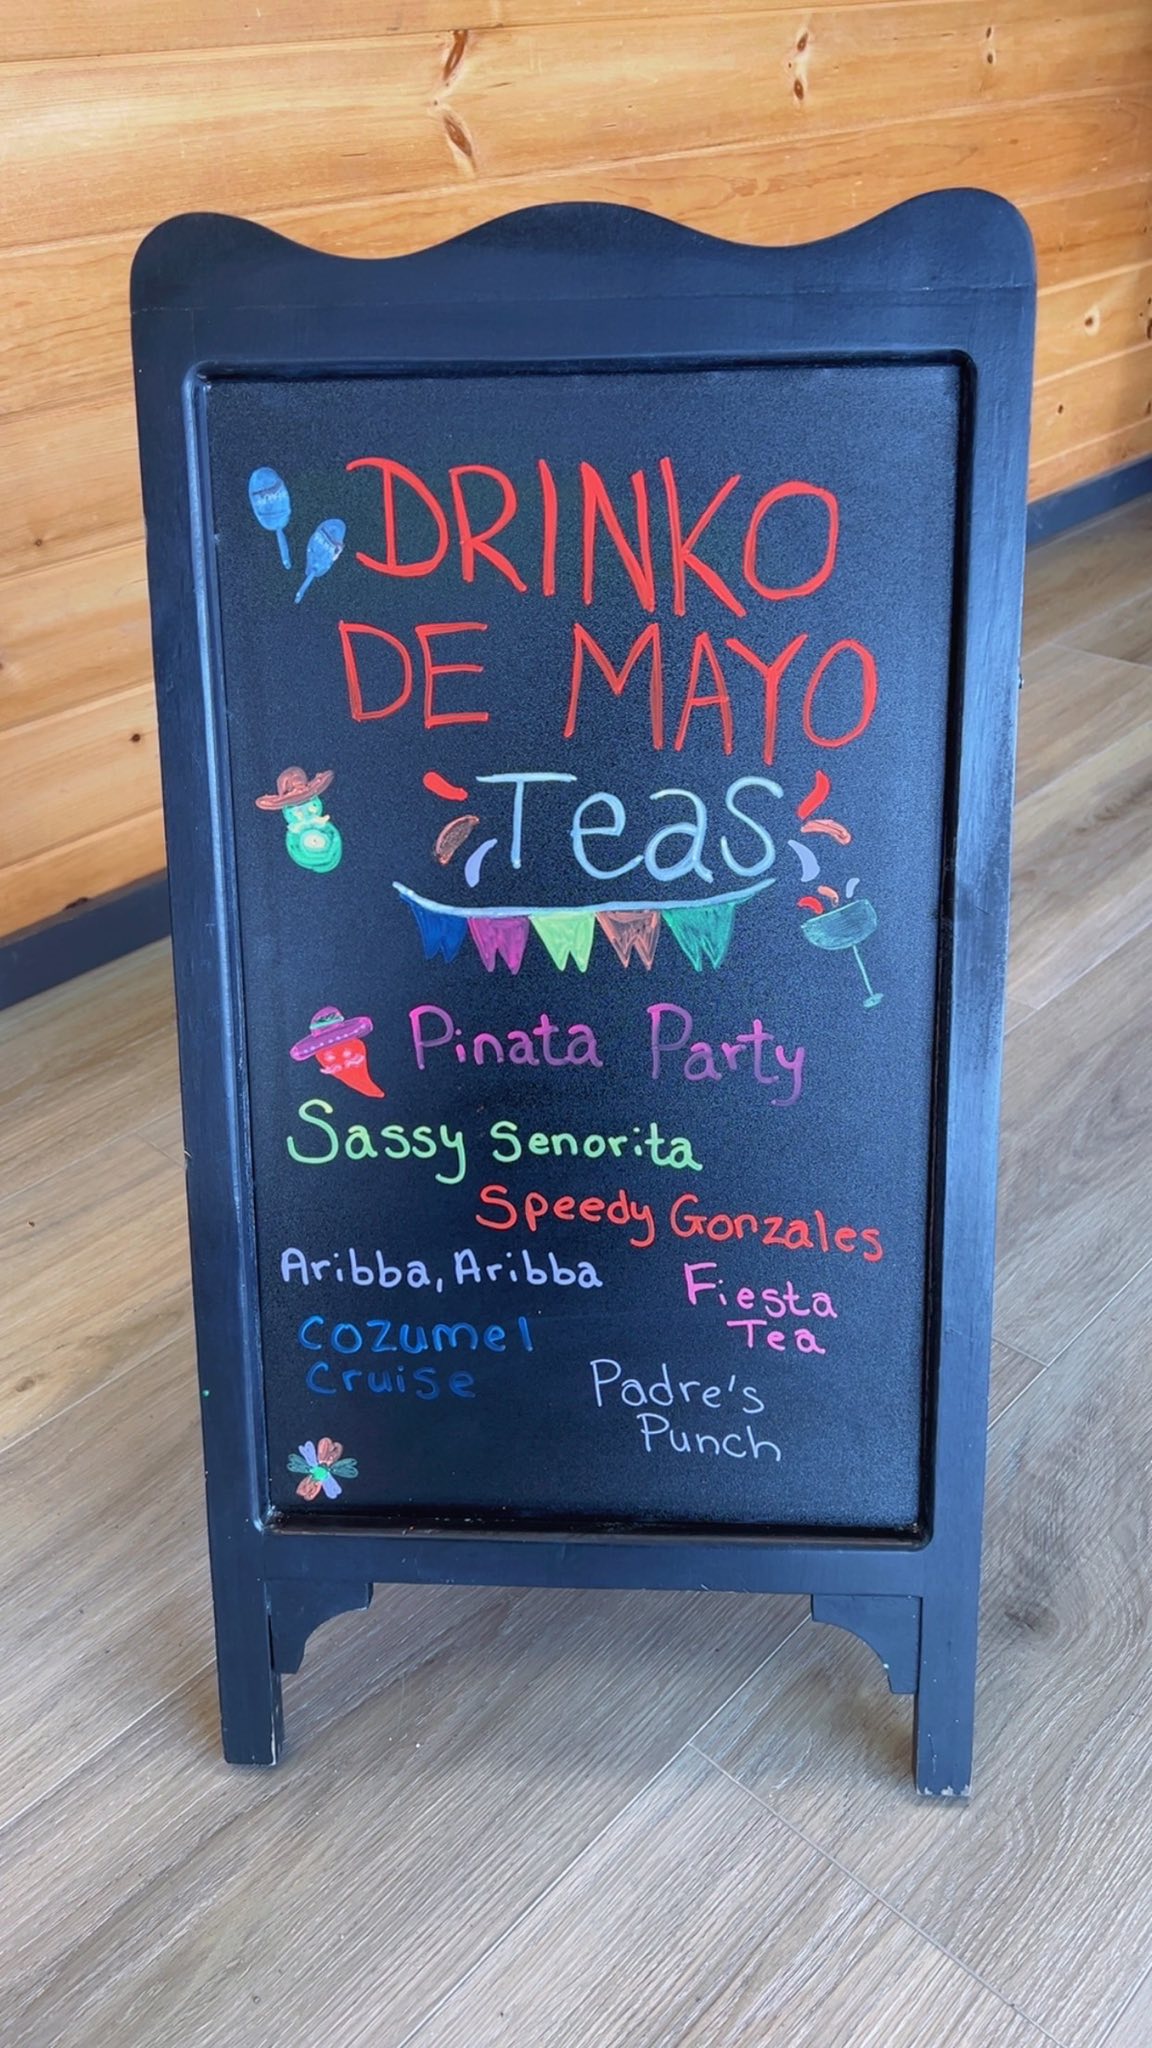 DRINKO
DE MAYO
Teas
Pinata Party
Sassy Senorita
Speedy Gonzales
Aribba, Aribba
Fiesta
Tea
Cozumel
Cruise
Padre's
Punch